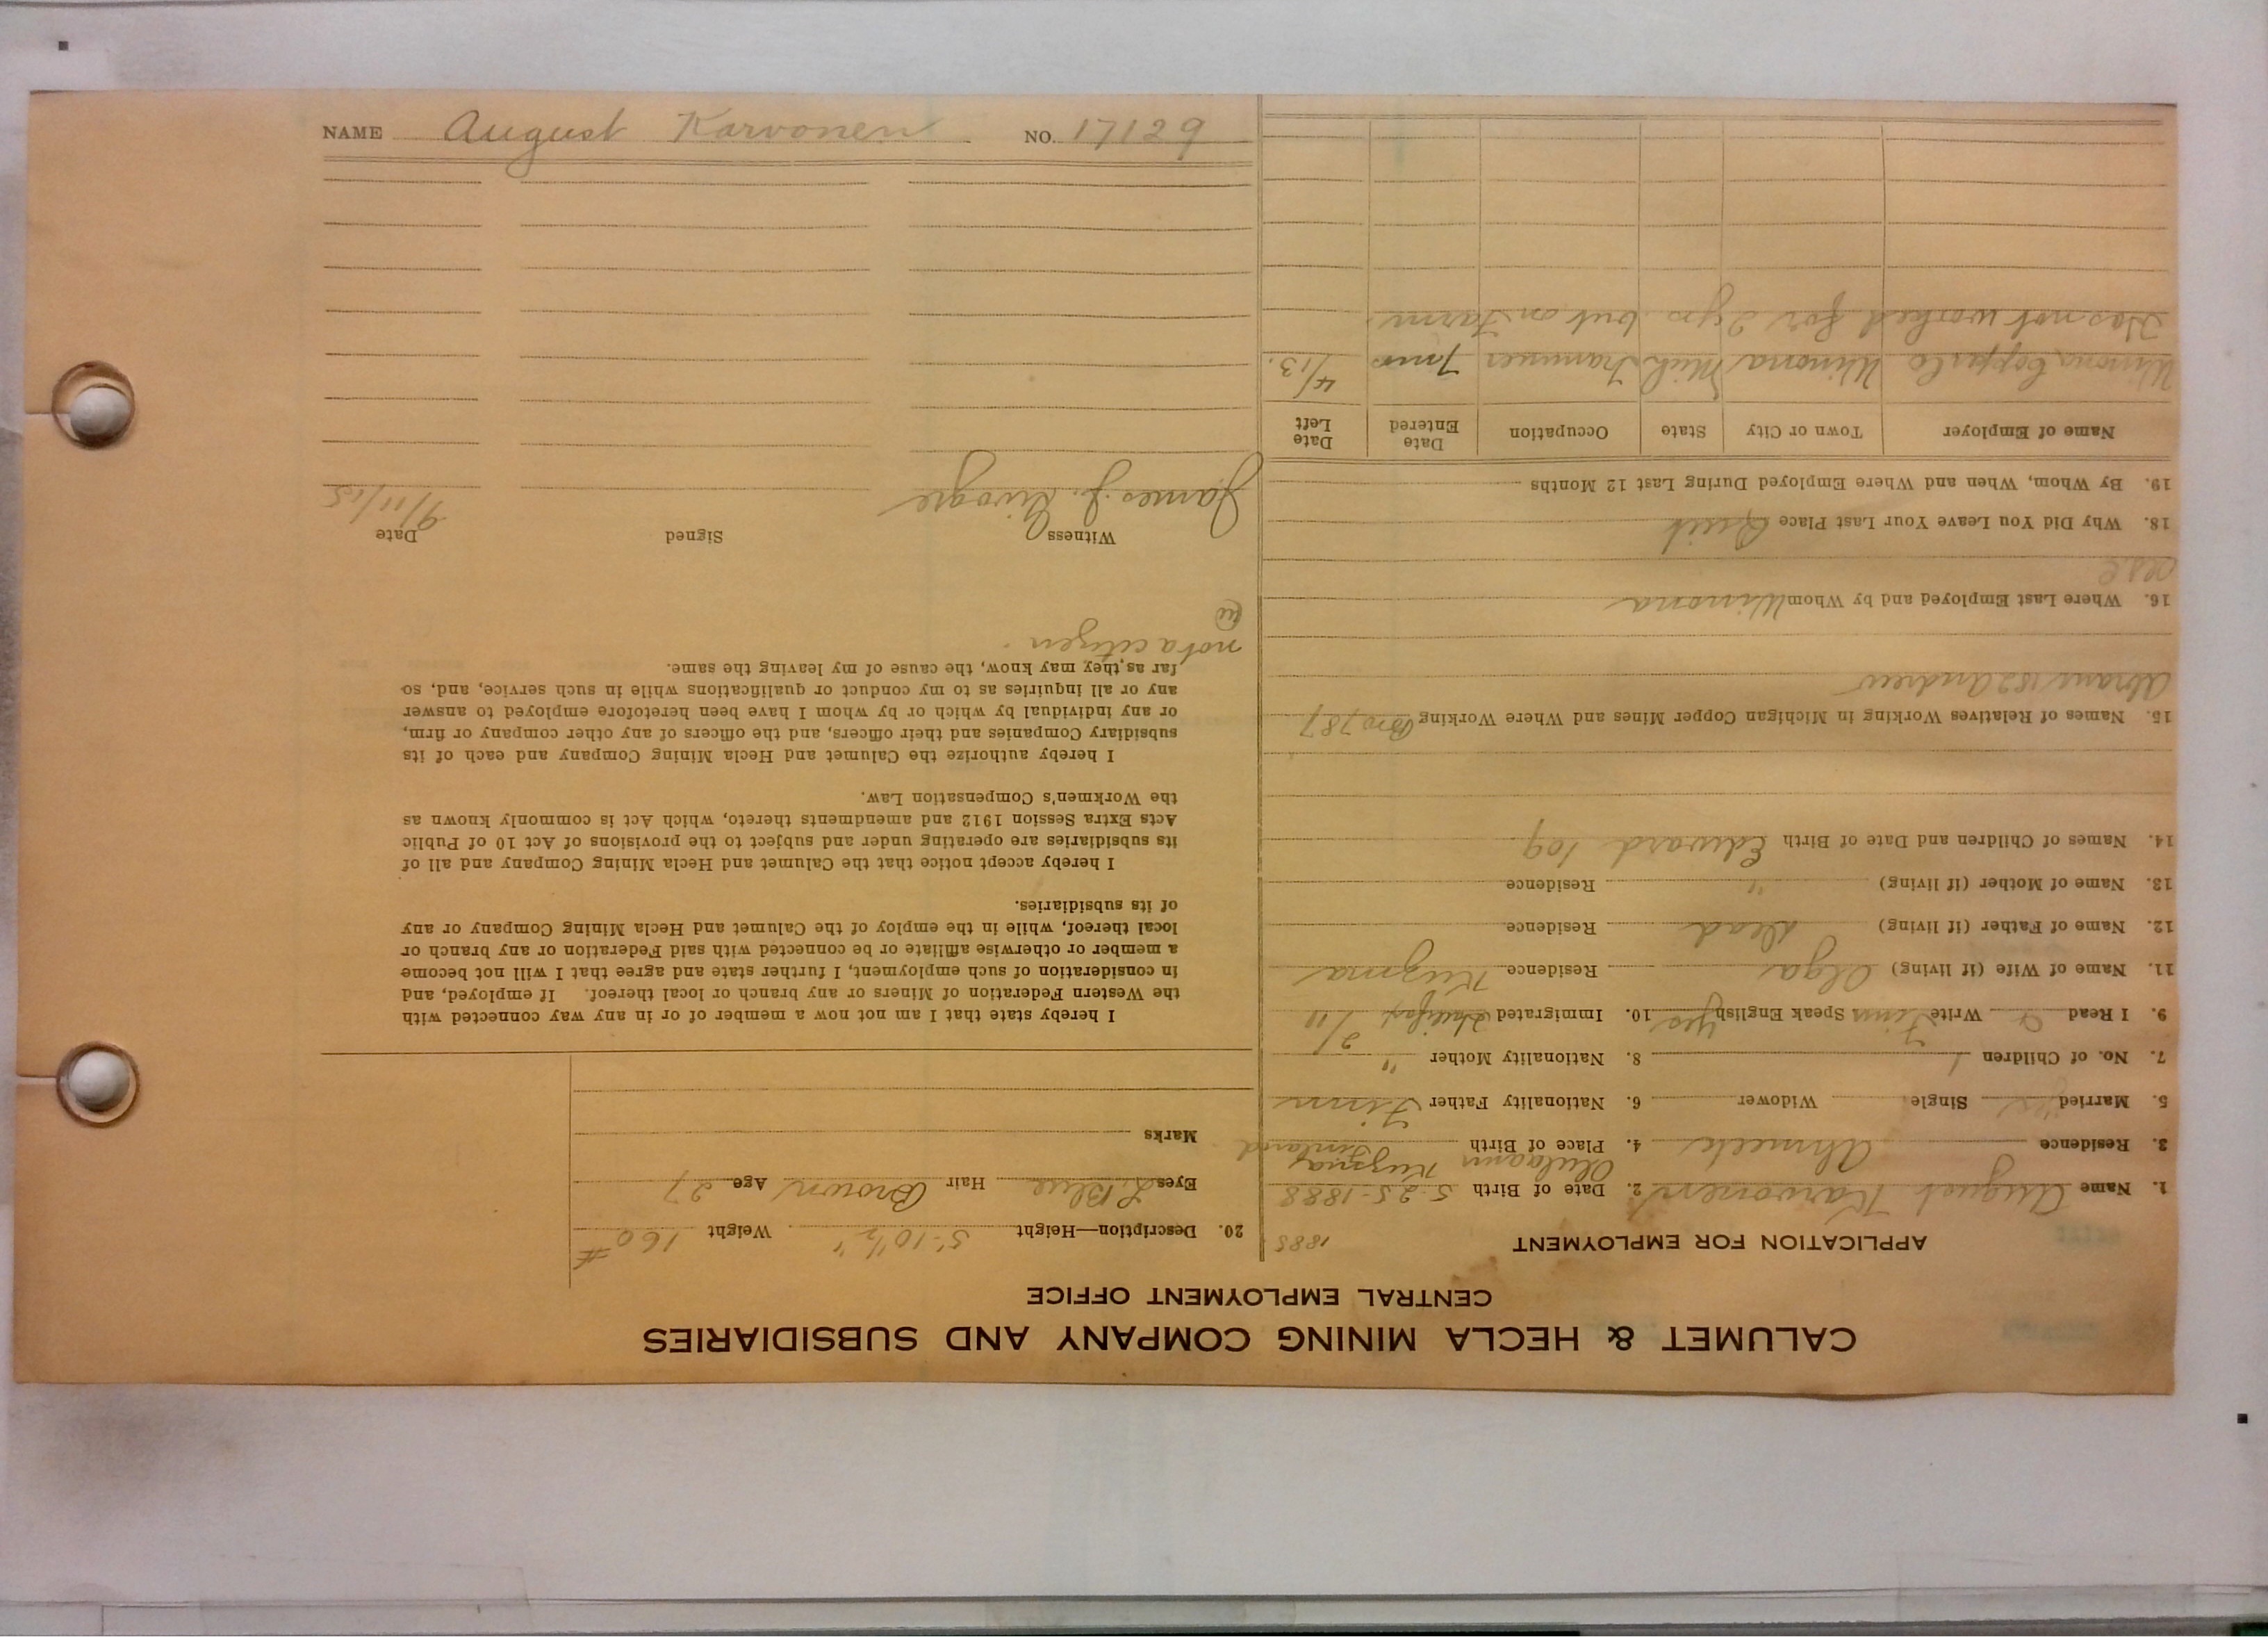 NAME August Karvonen NO. 17129
CALUMET & HECLA MINING COMPANY AND SUBSIDIARIES
CENTRAL EMPLOYMENT OFFICE
APPLICATION FOR EMPLOYMENT 1888
1. Name August Karvonen 2. Date of Birth 5-25-1888
3. Residence Ahmeek 4. Place of Birth Kuzma Finland
5. Married yes Single Widower 6. Nationality Father Finn
7. No. of Children 1 8. Nationality Mother "
9. I Read Write Finn Speak English yes 10. Immigrated Halifax 2/11
11. Name of Wife (if living) Olga Residence Kuzma
12. Name of Father (if living) Dead Residence
13. Name of Mother (if living) " Residence
14. Names of Children and Date of Birth Edward '09
15. Names of Relatives Working in Michigan Copper Mines and Where Working Bro, 787
Abram 182 Andrew
16. Where Last Employed and by Whom Winona
18. Why Did You Leave Your Last Place Quit
19. By Whom, When and Where Employed During Last 12 Months
Name of Employer Town or City State Occupation Date Entered Date Left
Winona Copper Co Winona Mich Trammer 7 mos 4/13.
Has not worked for 2 yrs. but on Farm.
20. Description—Height 5'-10 1/2" Weight 160 #
Eyes L. Blue Hair Brown Age 27
Marks
I hereby state that I am not now a member of or in any way connected with
the Western Federation of Miners or any branch or local thereof. If employed, and
in consideration of such employment, I further state and agree that I will not become
a member or otherwise affiliate or be connected with said Federation or any branch or
local thereof, while in the employ of the Calumet and Hecla Mining Company or any
of its subsidiaries.
I hereby accept notice that the Calumet and Hecla Mining Company and all of
its subsidiaries are operating under and subject to the provisions of Act 10 of Public
Acts Extra Session 1912 and amendments thereto, which Act is commonly known as
the Workmen's Compensation Law.
I hereby authorize the Calumet and Hecla Mining Company and each of its
subsidiary Companies and their officers, and the officers of any other company or firm,
or any individual by which or by whom I have been heretofore employed to answer
any or all inquiries as to my conduct or qualifications while in such service, and, so
far as they may know, the cause of my leaving the same.
not a citizen.
Witness Signed Date
James J. 9/11/15